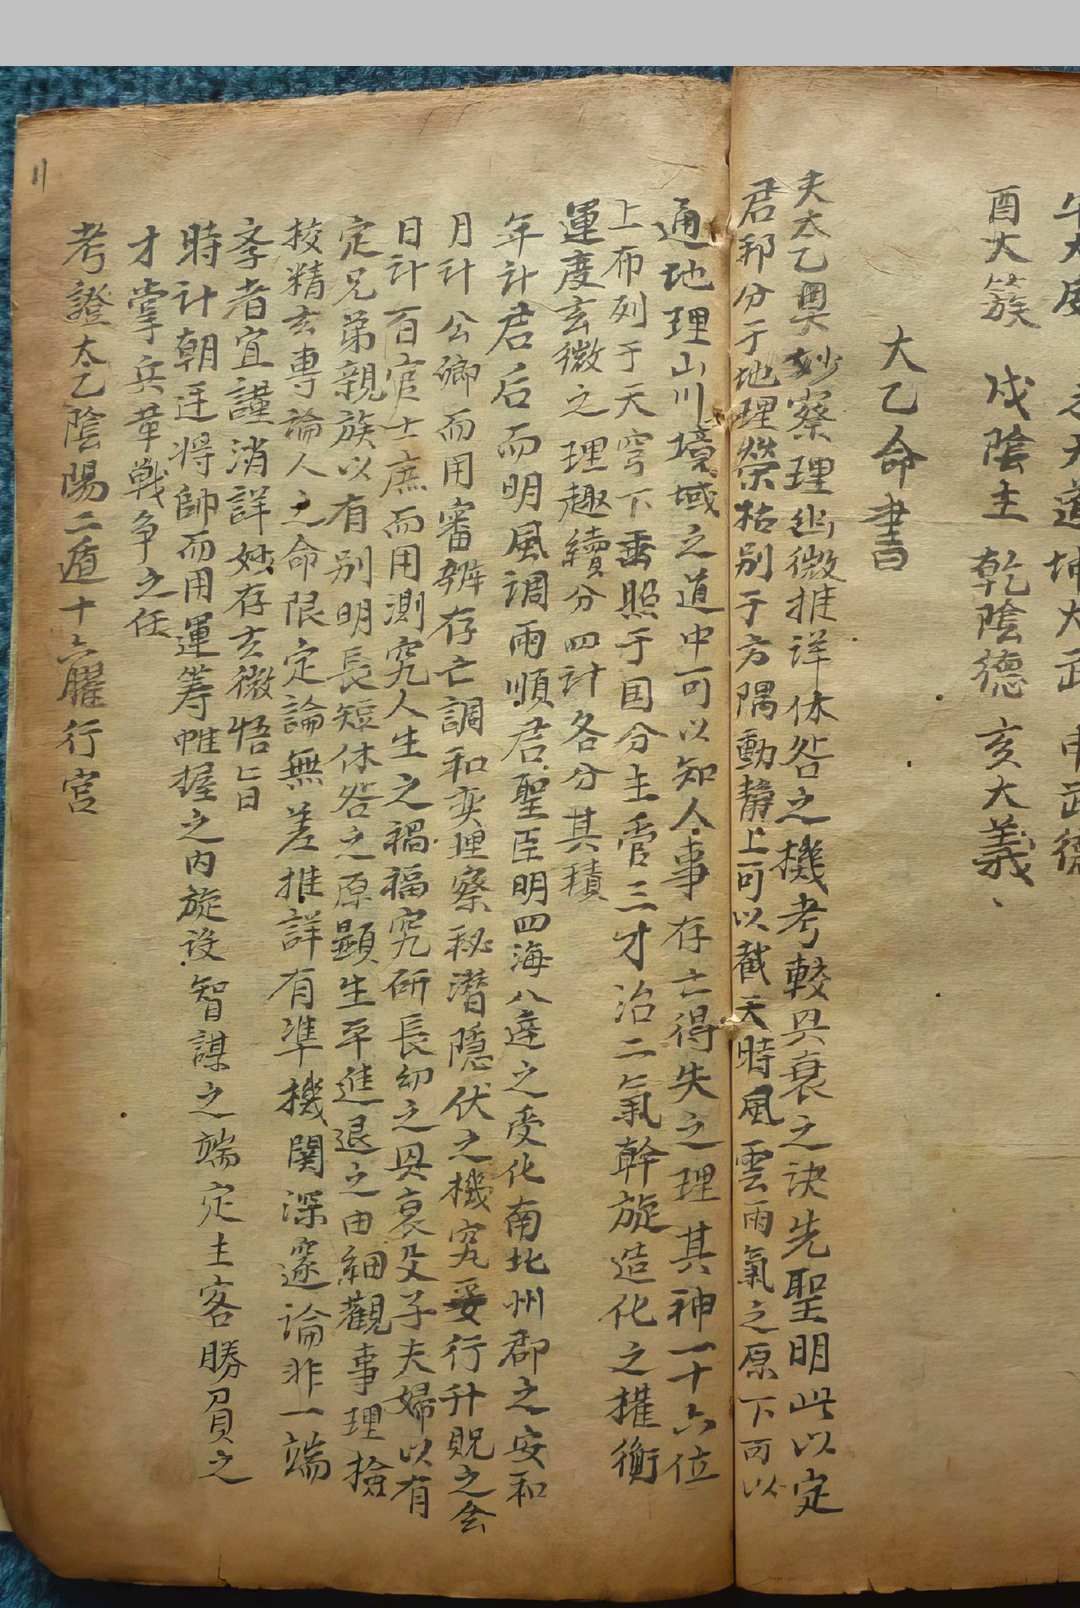 大威 天道 坤大武 申武德
酉大簇 戌陰主 乾陰德 亥大義
大乙命書
夫太乙奧妙察理幽微推详休咎之機考較具衰之诀先聖明此以定
君邦分于地理榮枯别于方隅動静上可以截天時風雲雨氣之原下可以
通地理山川境域之道中可以知人事存亡得失之理其神一十六位
上布列于天穹下垂照于国分主管三才治二氣幹旋造化之權衡
運度玄微之理趣續分四計各分其積
年计君后而明風调雨順君聖臣明四海八遠之受化南北州郡之安和
月计公卿而用審辨存亡調和奕理察秘潛隱伏之機究妥行升貺之会
日计百官士庶而用測究人生之禍福究研長幼之具衰父子夫婦以有
定兄弟親族以有别明長短休咎之原顯生平進退之由細觀事理撿
挍精玄專論人之命限定論無差推詳有準機関深邃論非一端
孝者宜謹消詳妙存玄微悟旨
時计朝廷將帥而用運筹帷握之内旋設智謀之端定主客勝負之
才掌兵革戦争之任
考證太乙陰陽二遁十六曜行宫